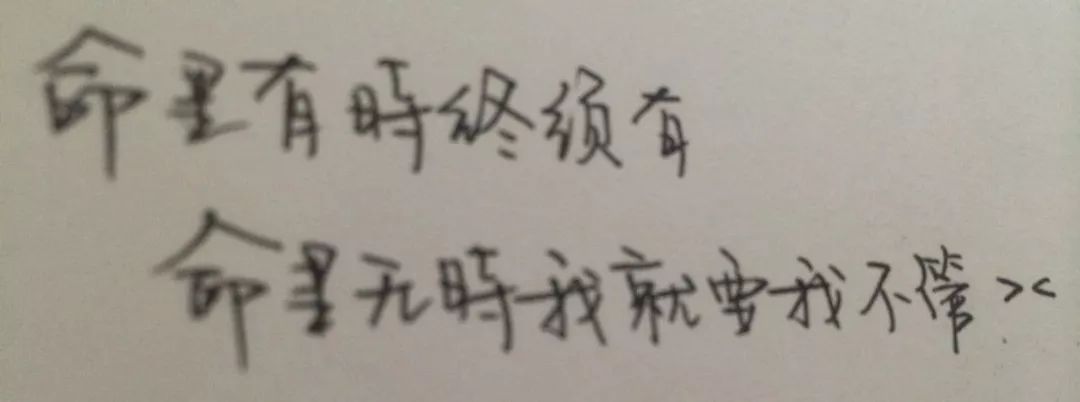 命里有時终须有
命里无時我就要我不管><